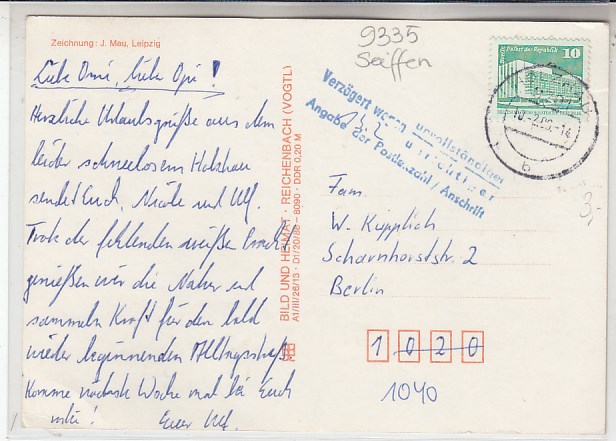 Zeichnung: J. Mau, Leipzig
Liebe Omi, lieber Opi!
Herzliche Urlaubsgrüße aus dem
leider schneelosem Holzhau
sendet Euch, Nicole und Ulf.
Trotz der fehlenden weißen Pracht
genießen wir die Natur und
sammeln Kraft für den bald
wieder beginnenden Alltagsstreß.
Komme nächste Woche mal bei Euch
vorbei! Euer Ulf.
BILD UND HEIMAT · REICHENBACH (VOGTL)
A1/III/26/13 · D1/20/88 - 8090 · DDR 0,20 M
9335
Seiffen
Verzögert wegen unvollständiger
Angabe der Postleitzahl / Anschrift
Palast der Republik
10
Fam.
W. Küpplich
Scharnhorststr. 2
Berlin
1 0 2 0
1040
3,-